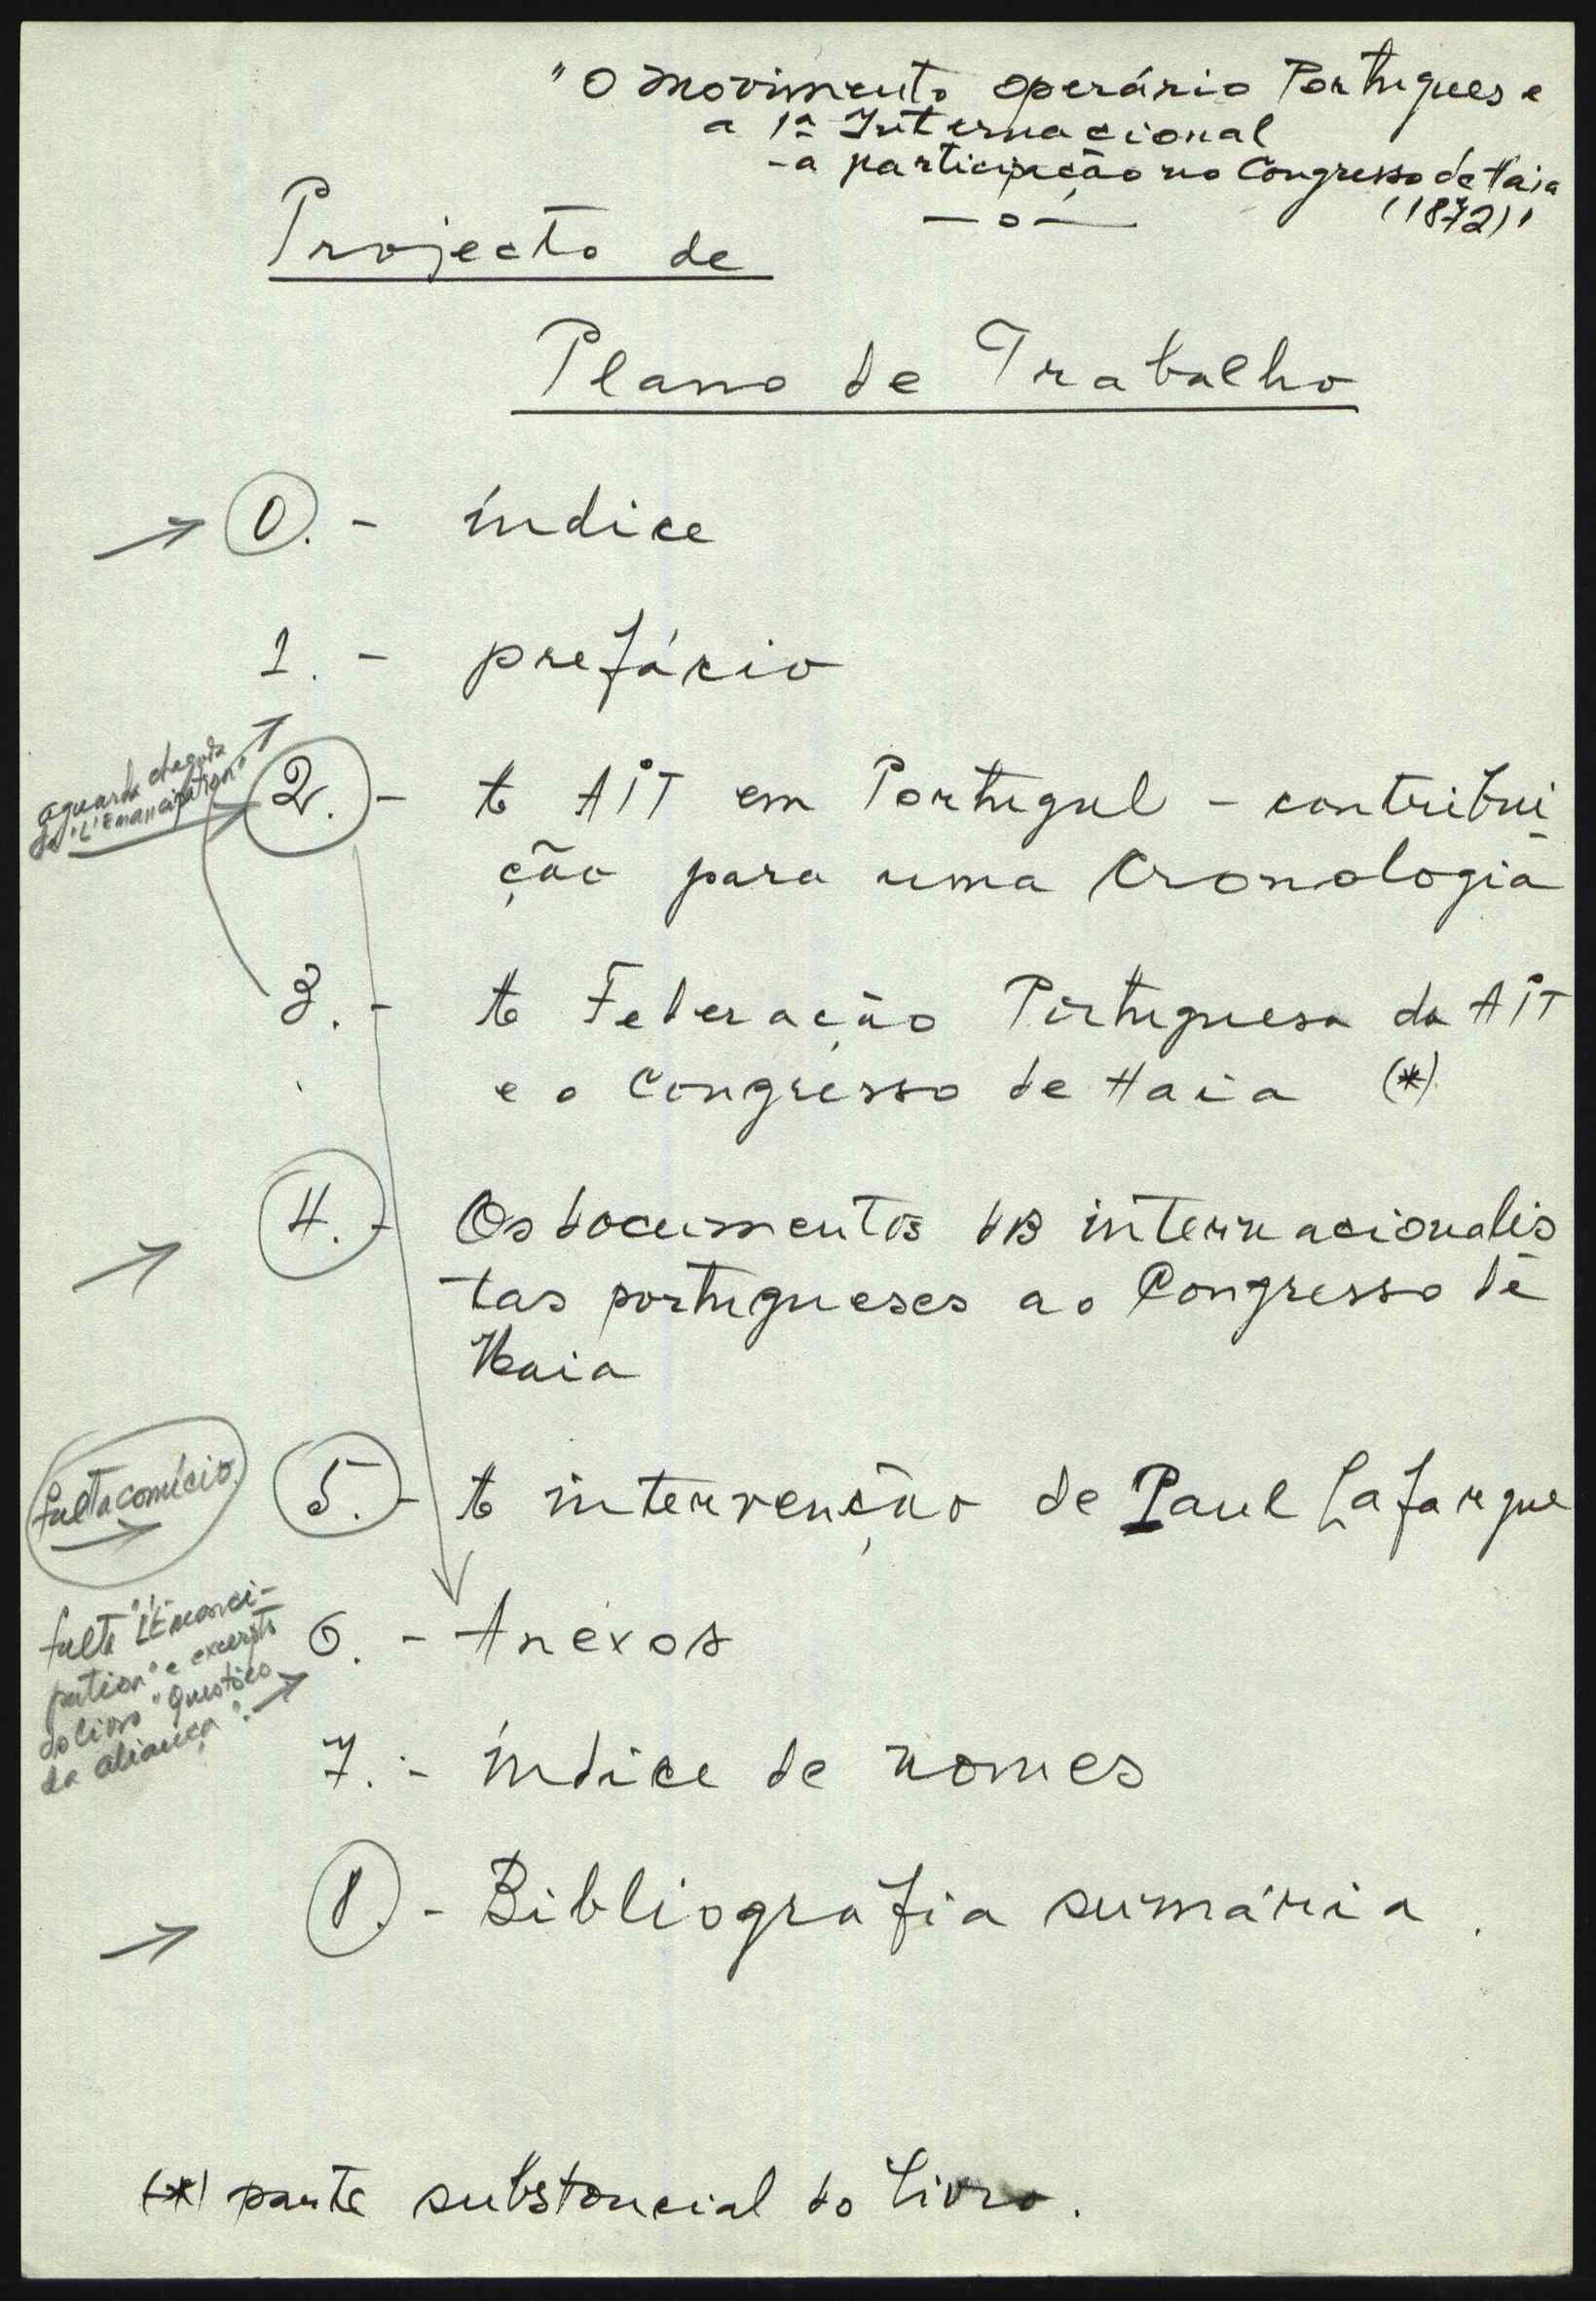 "O Movimento operário Portugues e
a 1ª Internacional
- a participação no Congresso de Haia
(1872)"
—o—
Projecto de
Plano de Trabalho
→ 0. - índice
1. - prefácio
aguarda chegada
de "L'Emancipation"
2. - A AIT em Portugal - contribui
ção para uma Cronologia
3. - A Federação Portuguesa da AIT
e o Congresso de Haia (*)
→ 4. - Os documentos dos internacionalis
tas portugueses ao Congresso de
Haia
falta comício →
5. - A intervenção de Paul Lafargue
falta "L'Emanci-
pation" e excerpto
do livro "Questões
da aliança". →
6. - Anexos
7. - índice de nomes
→ 8. - Bibliografia sumária.
(*) parte substancial do Livro.